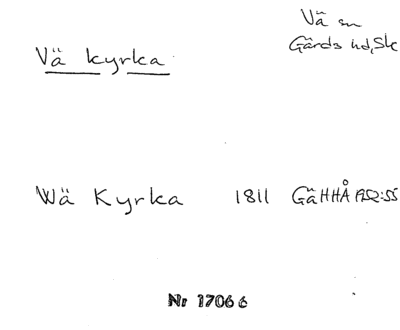 Vä kyrka
Vä sn
Gärds hd, Sk
Wä Kyrka 1811 GäHHÅ 1952:55
Nr 17066